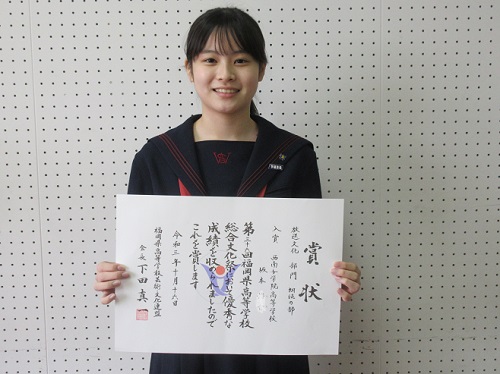 賞状
放送文化部門 朗読の部
入賞 西南女学院高等学校
坂本
福岡県高等学校
総合文化祭において優秀な
成績を収められましたので
これを賞します
令和三年十月十六日
福岡県高等学校芸術・文化連盟
会長 下田 真一